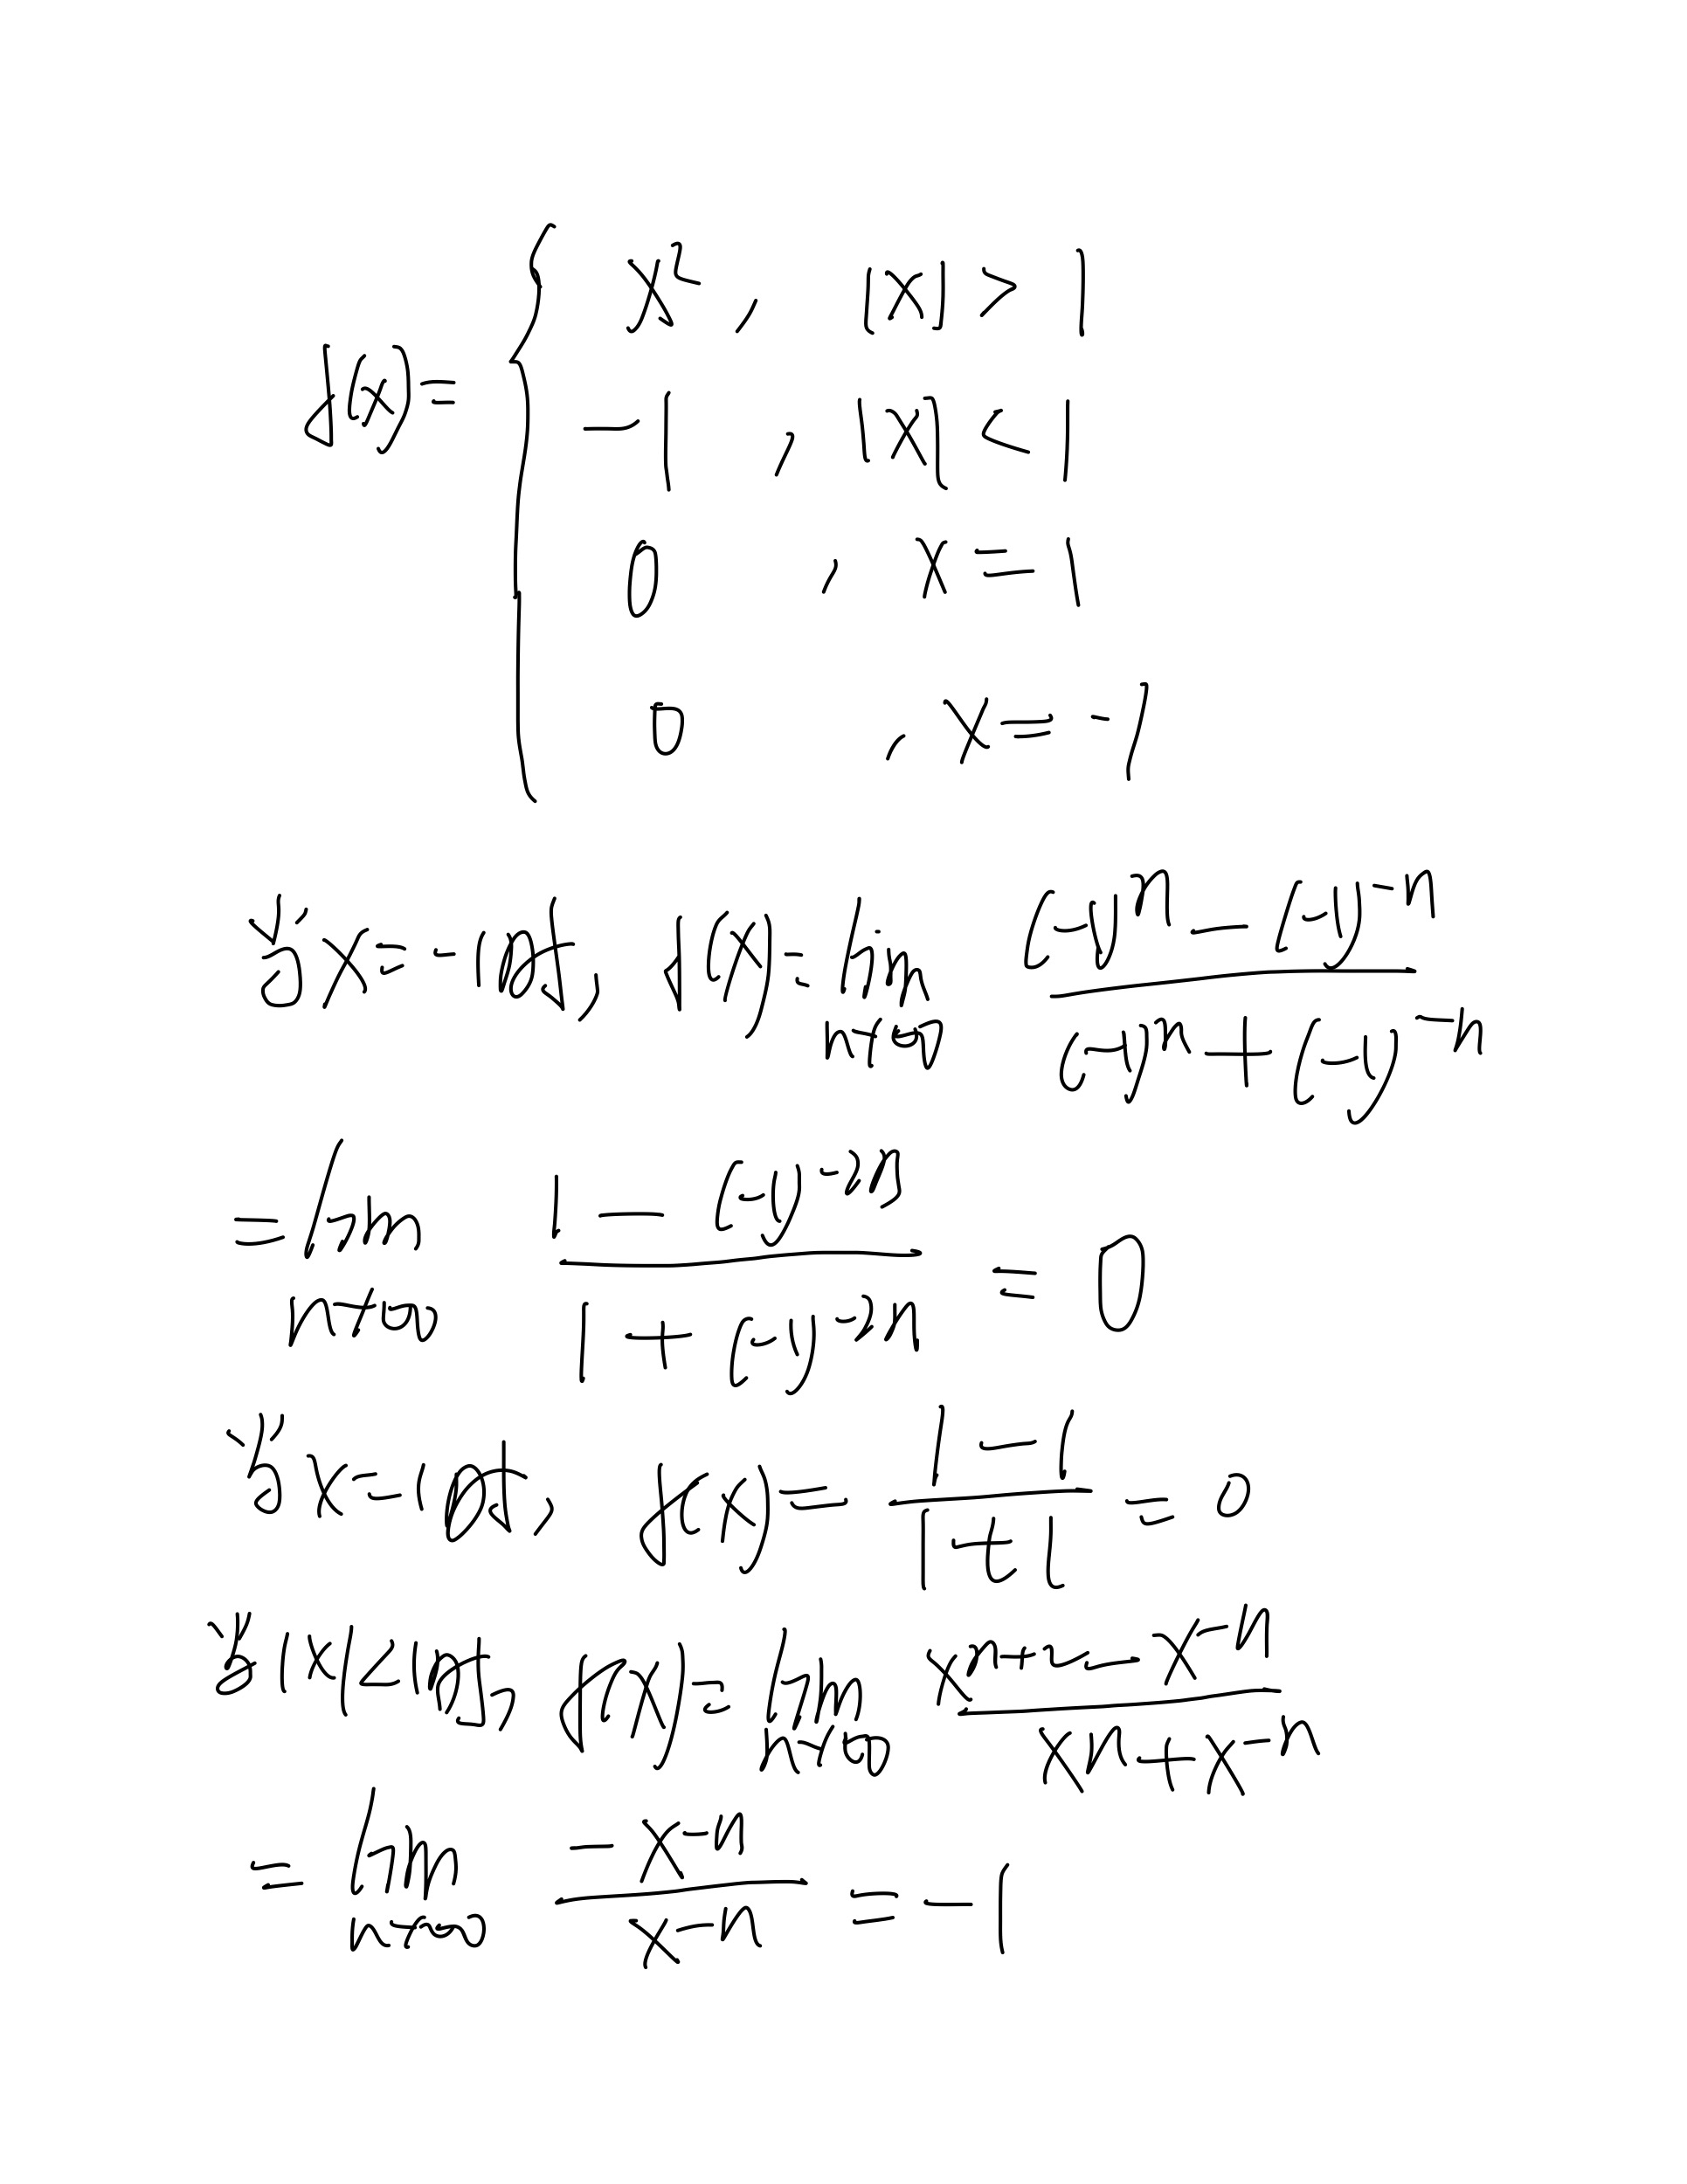 f(x)= { x², |x|>1
-1, |x|<1
0, x=1
0, x=-1
当x=-1时, f(x)=lim n→∞ ((-1)^n-(-1)^-n)/((-1)^n+(-1)^-n)
=lim n→∞ (1-(-1)^-2n)/(1+(-1)^-2n)=0
当x=1时, f(x)=(1-1)/(1+1)=0
当|x|<1时, f(x)=lim n→∞ (x^n+2-x^-n)/(x^n+x^-n)
=lim n→∞ (-x^-n)/(x^-n)=-1